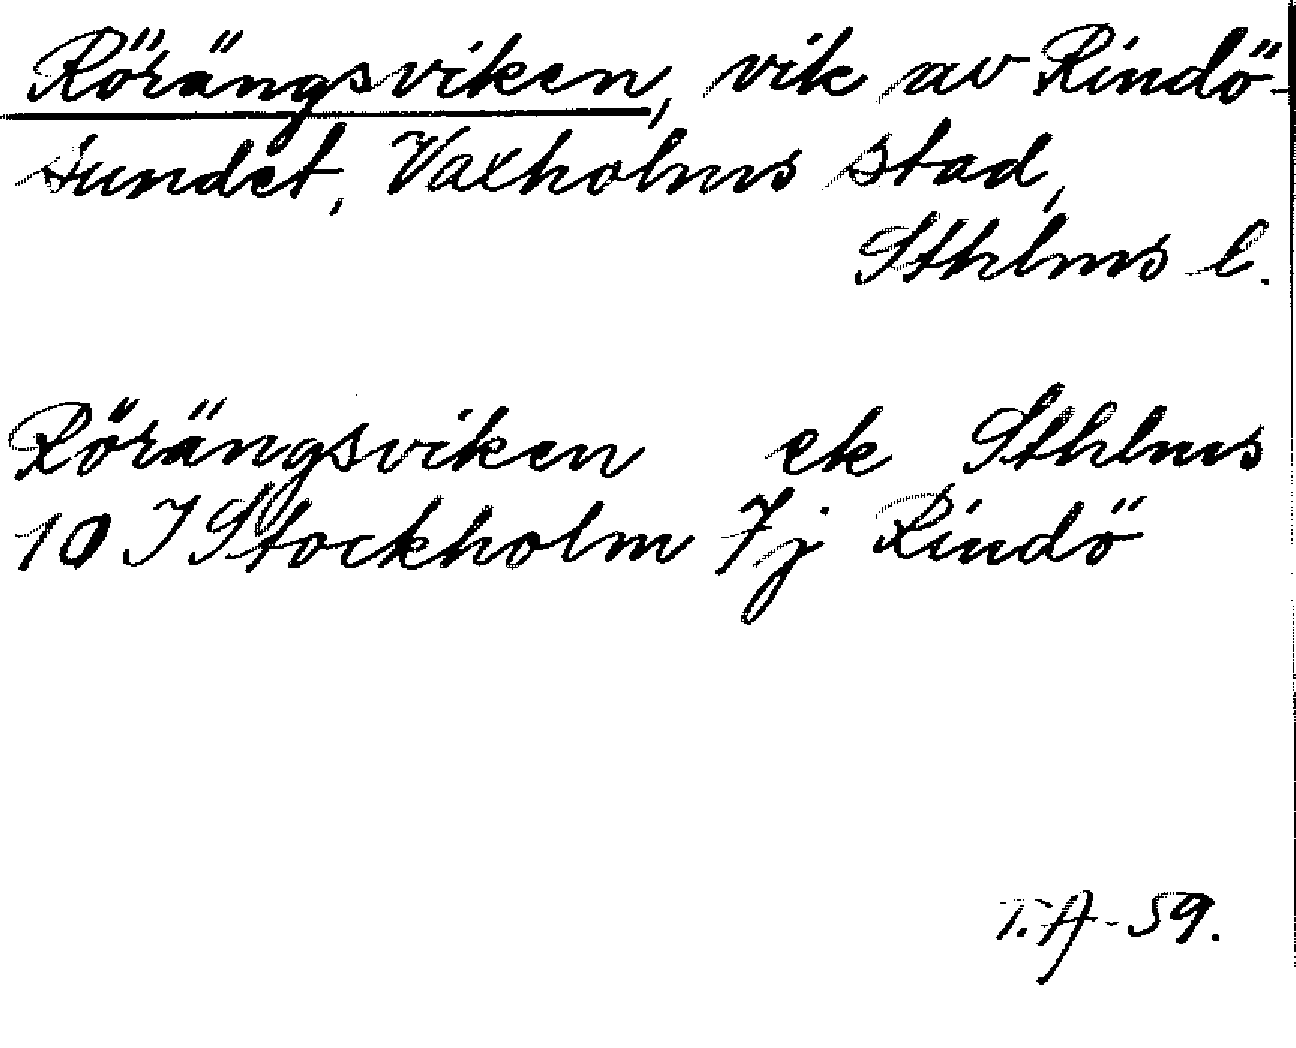 Rörängsviken, vik av Rindö-
sundet, Vaxholms stad,
Sthlms l.
Rörängsviken ek Sthlms
10 I Stockholm 7j Rindö
T.A-59.